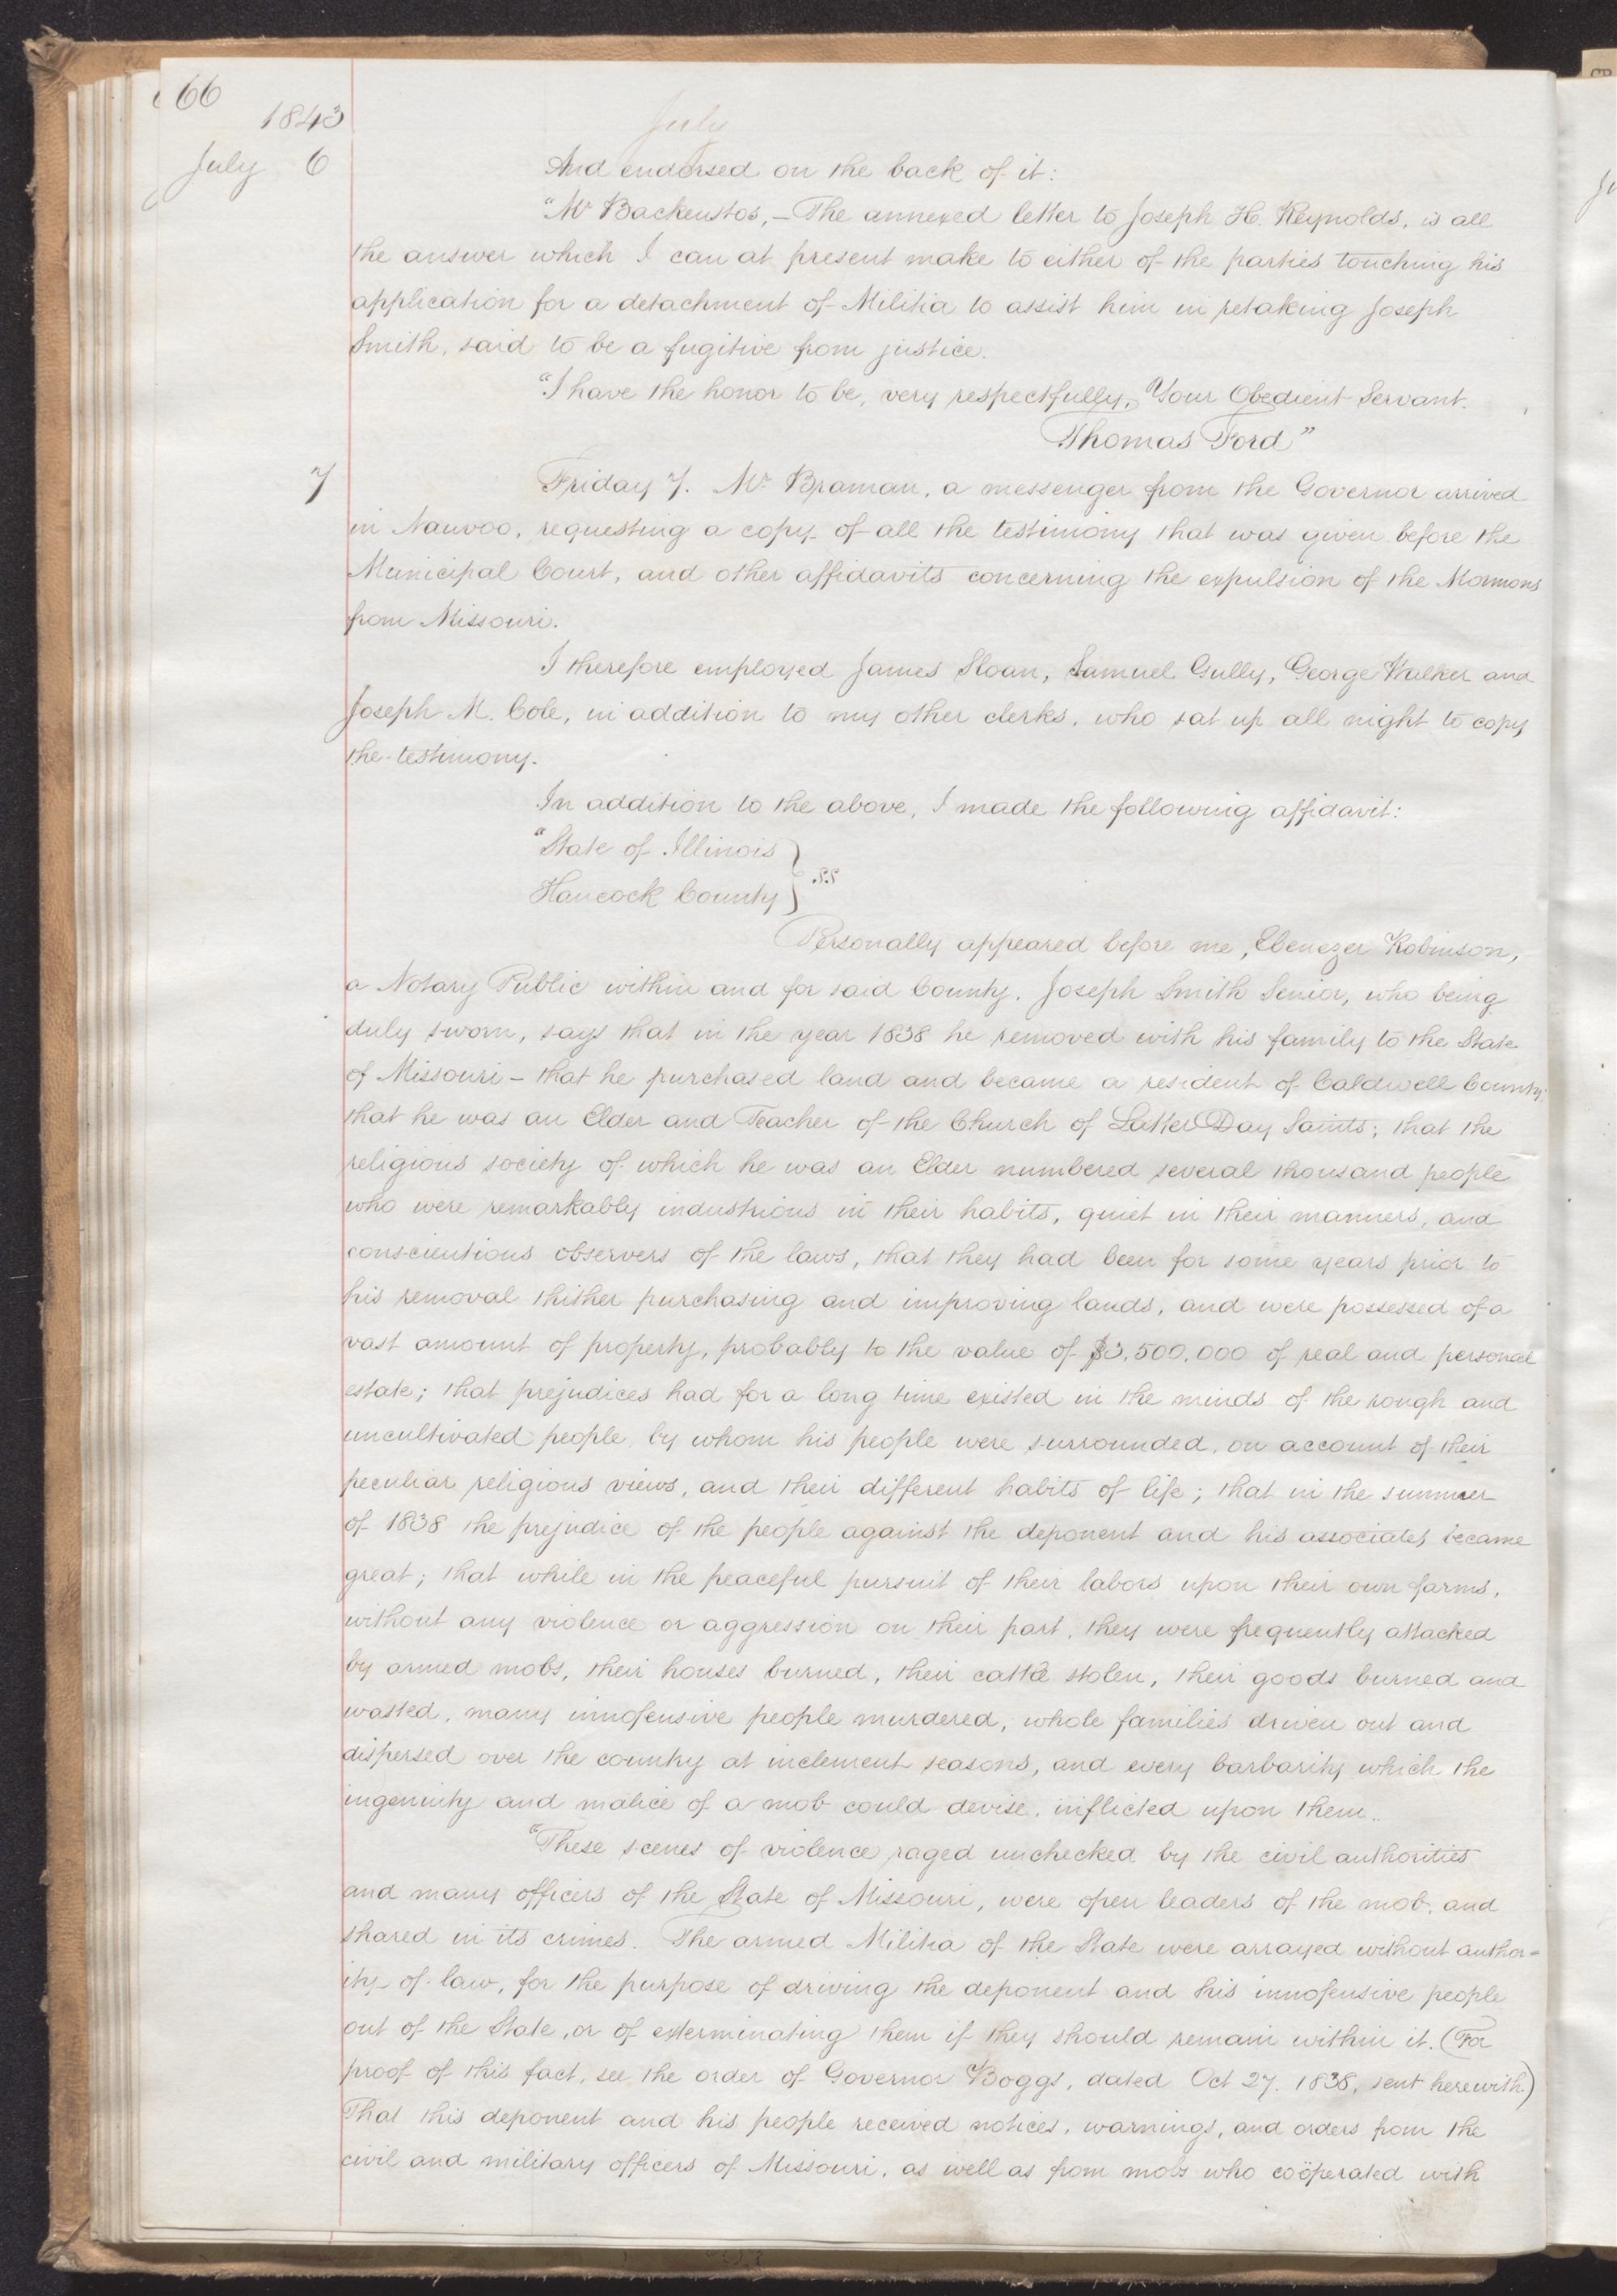 66
1843
July
July 6
And endorsed on the back of it:
"Mr Backenstos,—The annexed letter to Joseph H. Reynolds, is all
the answer which I can at present make to either of the parties touching his
application for a detachment of Militia to assist him in retaking Joseph
Smith, said to be a fugitive from justice.
"I have the honor to be, very respectfully, Your Obedient Servant.
Thomas Ford"
7
Friday 7. Mr Braman, a messenger from the Governor arrived
in Nauvoo, requesting a copy of all the testimony that was given before the
Municipal Court, and other affidavits concerning the expulsion of the Mormons
from Missouri.
I therefore employed James Sloan, Samuel Gully, George Walker and
Joseph M. Cole, in addition to my other clerks, who sat up all night to copy
the testimony.
In addition to the above, I made the following affidavit:
"State of Illinois }
Hancock County } ss.
Personally appeared before me, Ebenezer Robinson,
a Notary Public within and for said County, Joseph Smith Senior, who being
duly sworn, says that in the year 1838 he removed with his family to the State
of Missouri – that he purchased land and became a resident of Caldwell County;
that he was an Elder and Teacher of the Church of Latter Day Saints; that the
religious society of which he was an Elder numbered several thousand people
who were remarkably industrious in their habits, quiet in their manners, and
conscientious observers of the laws, that they had been for some years prior to
his removal thither purchasing and improving lands, and were possessed of a
vast amount of property, probably to the value of $3,500,000 of real and personal
estate; that prejudices had for a long time existed in the minds of the rough and
uncultivated people by whom his people were surrounded, on account of their
peculiar religious views, and their different habits of life; that in the summer
of 1838 the prejudice of the people against the deponent and his associates became
great; that while in the peaceful pursuit of their labors upon their own farms,
without any violence or aggression on their part, they were frequently attacked
by armed mobs, their houses burned, their cattle stolen, their goods burned and
wasted, many innofensive people murdered, whole families driven out and
dispersed over the country at inclement seasons, and every barbarity which the
ingenuity and malice of a mob could devise, inflicted upon them.
"These scenes of violence raged unchecked by the civil authorities
and many officers of the State of Missouri, were open leaders of the mob, and
shared in its crimes. The armed Militia of the State were arrayed without author=
ity of law, for the purpose of driving the deponent and his innofensive people
out of the State, or of exterminating them if they should remain within it. (For
proof of this fact, see the order of Governor Boggs, dated Oct 27. 1838, sent herewith.)
That this deponent and his people received notices, warnings, and orders from the
civil and military officers of Missouri, as well as from mobs who coöperated with